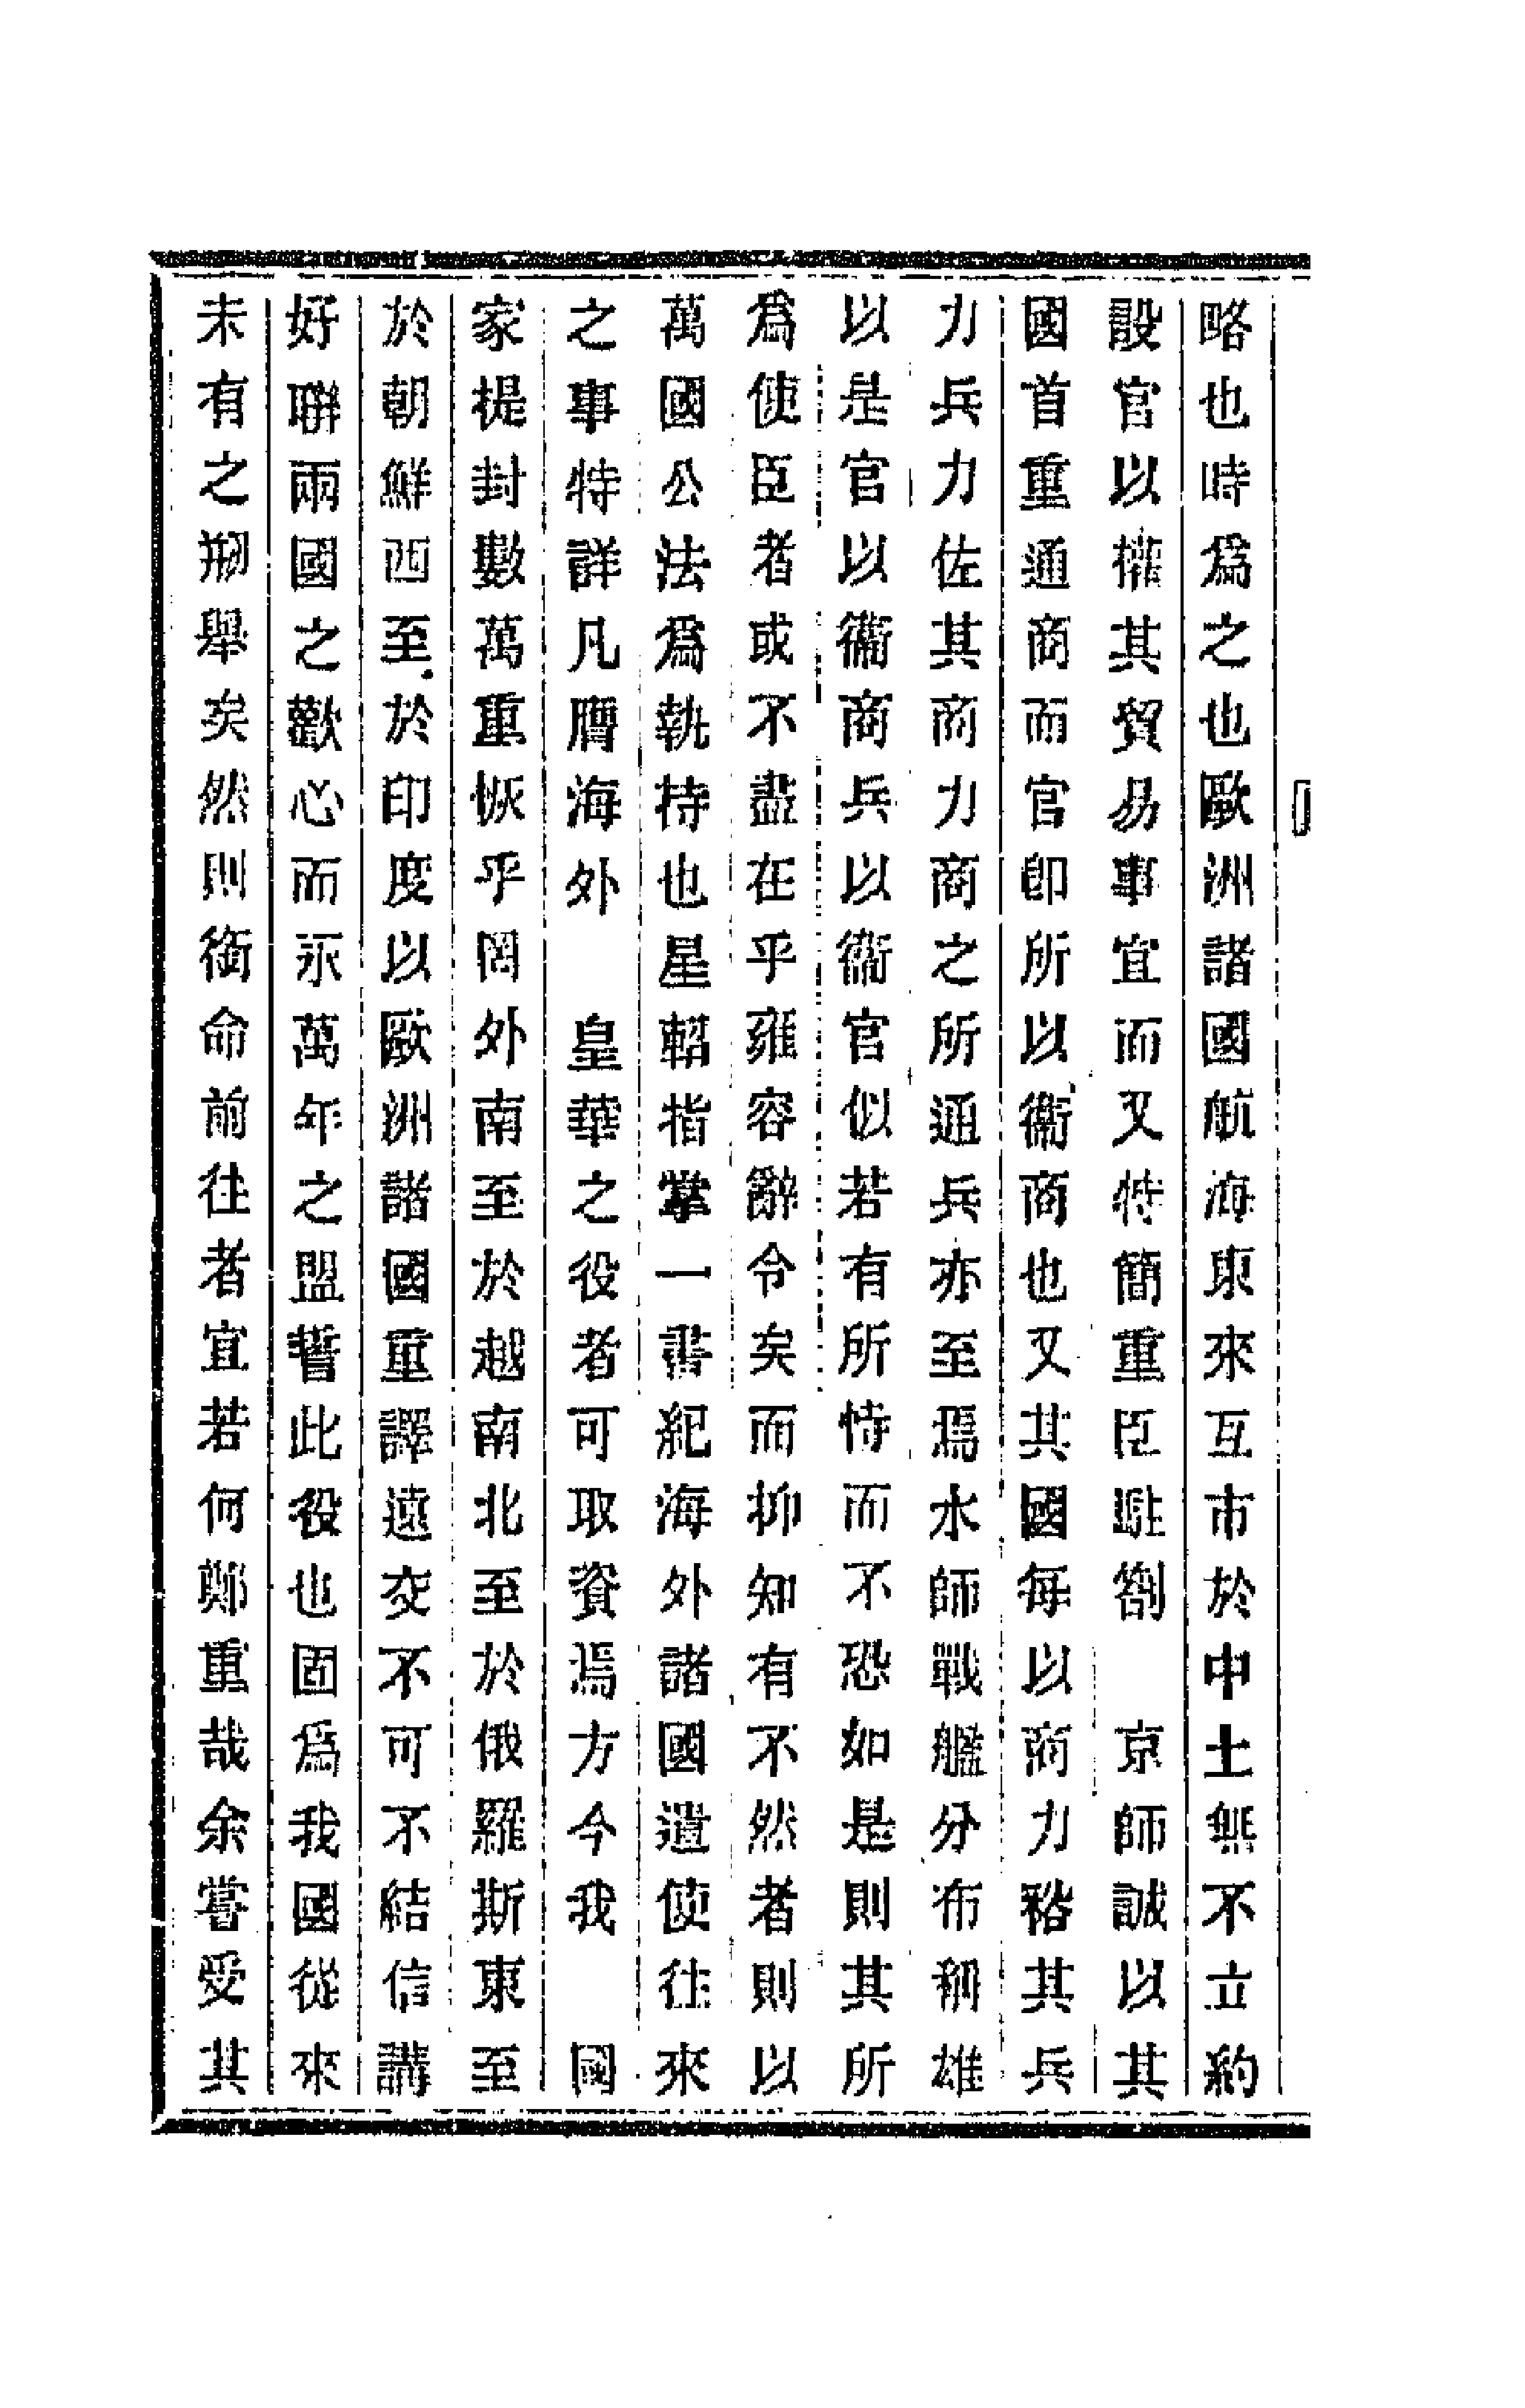 略也時爲之也歐洲諸國航海東來互市於中土無不立約
設官以權其貿易事宜而又特簡重臣駐劄　京師誠以其
國首重通商而官卽所以衞商也又其國每以商力裕其兵
力兵力佐其商力商之所通兵亦至焉水師戰艦分布稱雄
以是官以衞商兵以衞官似若有所恃而不恐如是則其所
爲使臣者或不盡在乎雍容辭令矣而抑知有不然者則以
萬國公法爲執持也星軺指掌一書紀海外諸國遣使往來
之事特詳凡膺海外　皇華之役者可取資焉方今我　國
家提封數萬重恢乎罔外南至於越南北至於俄羅斯東至
於朝鮮西至於印度以歐洲諸國重譯遠交不可不結信講
好聯兩國之歡心而永萬年之盟誓此役也固爲我國從來
未有之剏舉矣然則銜命前往者宜若何鄭重哉余嘗受其